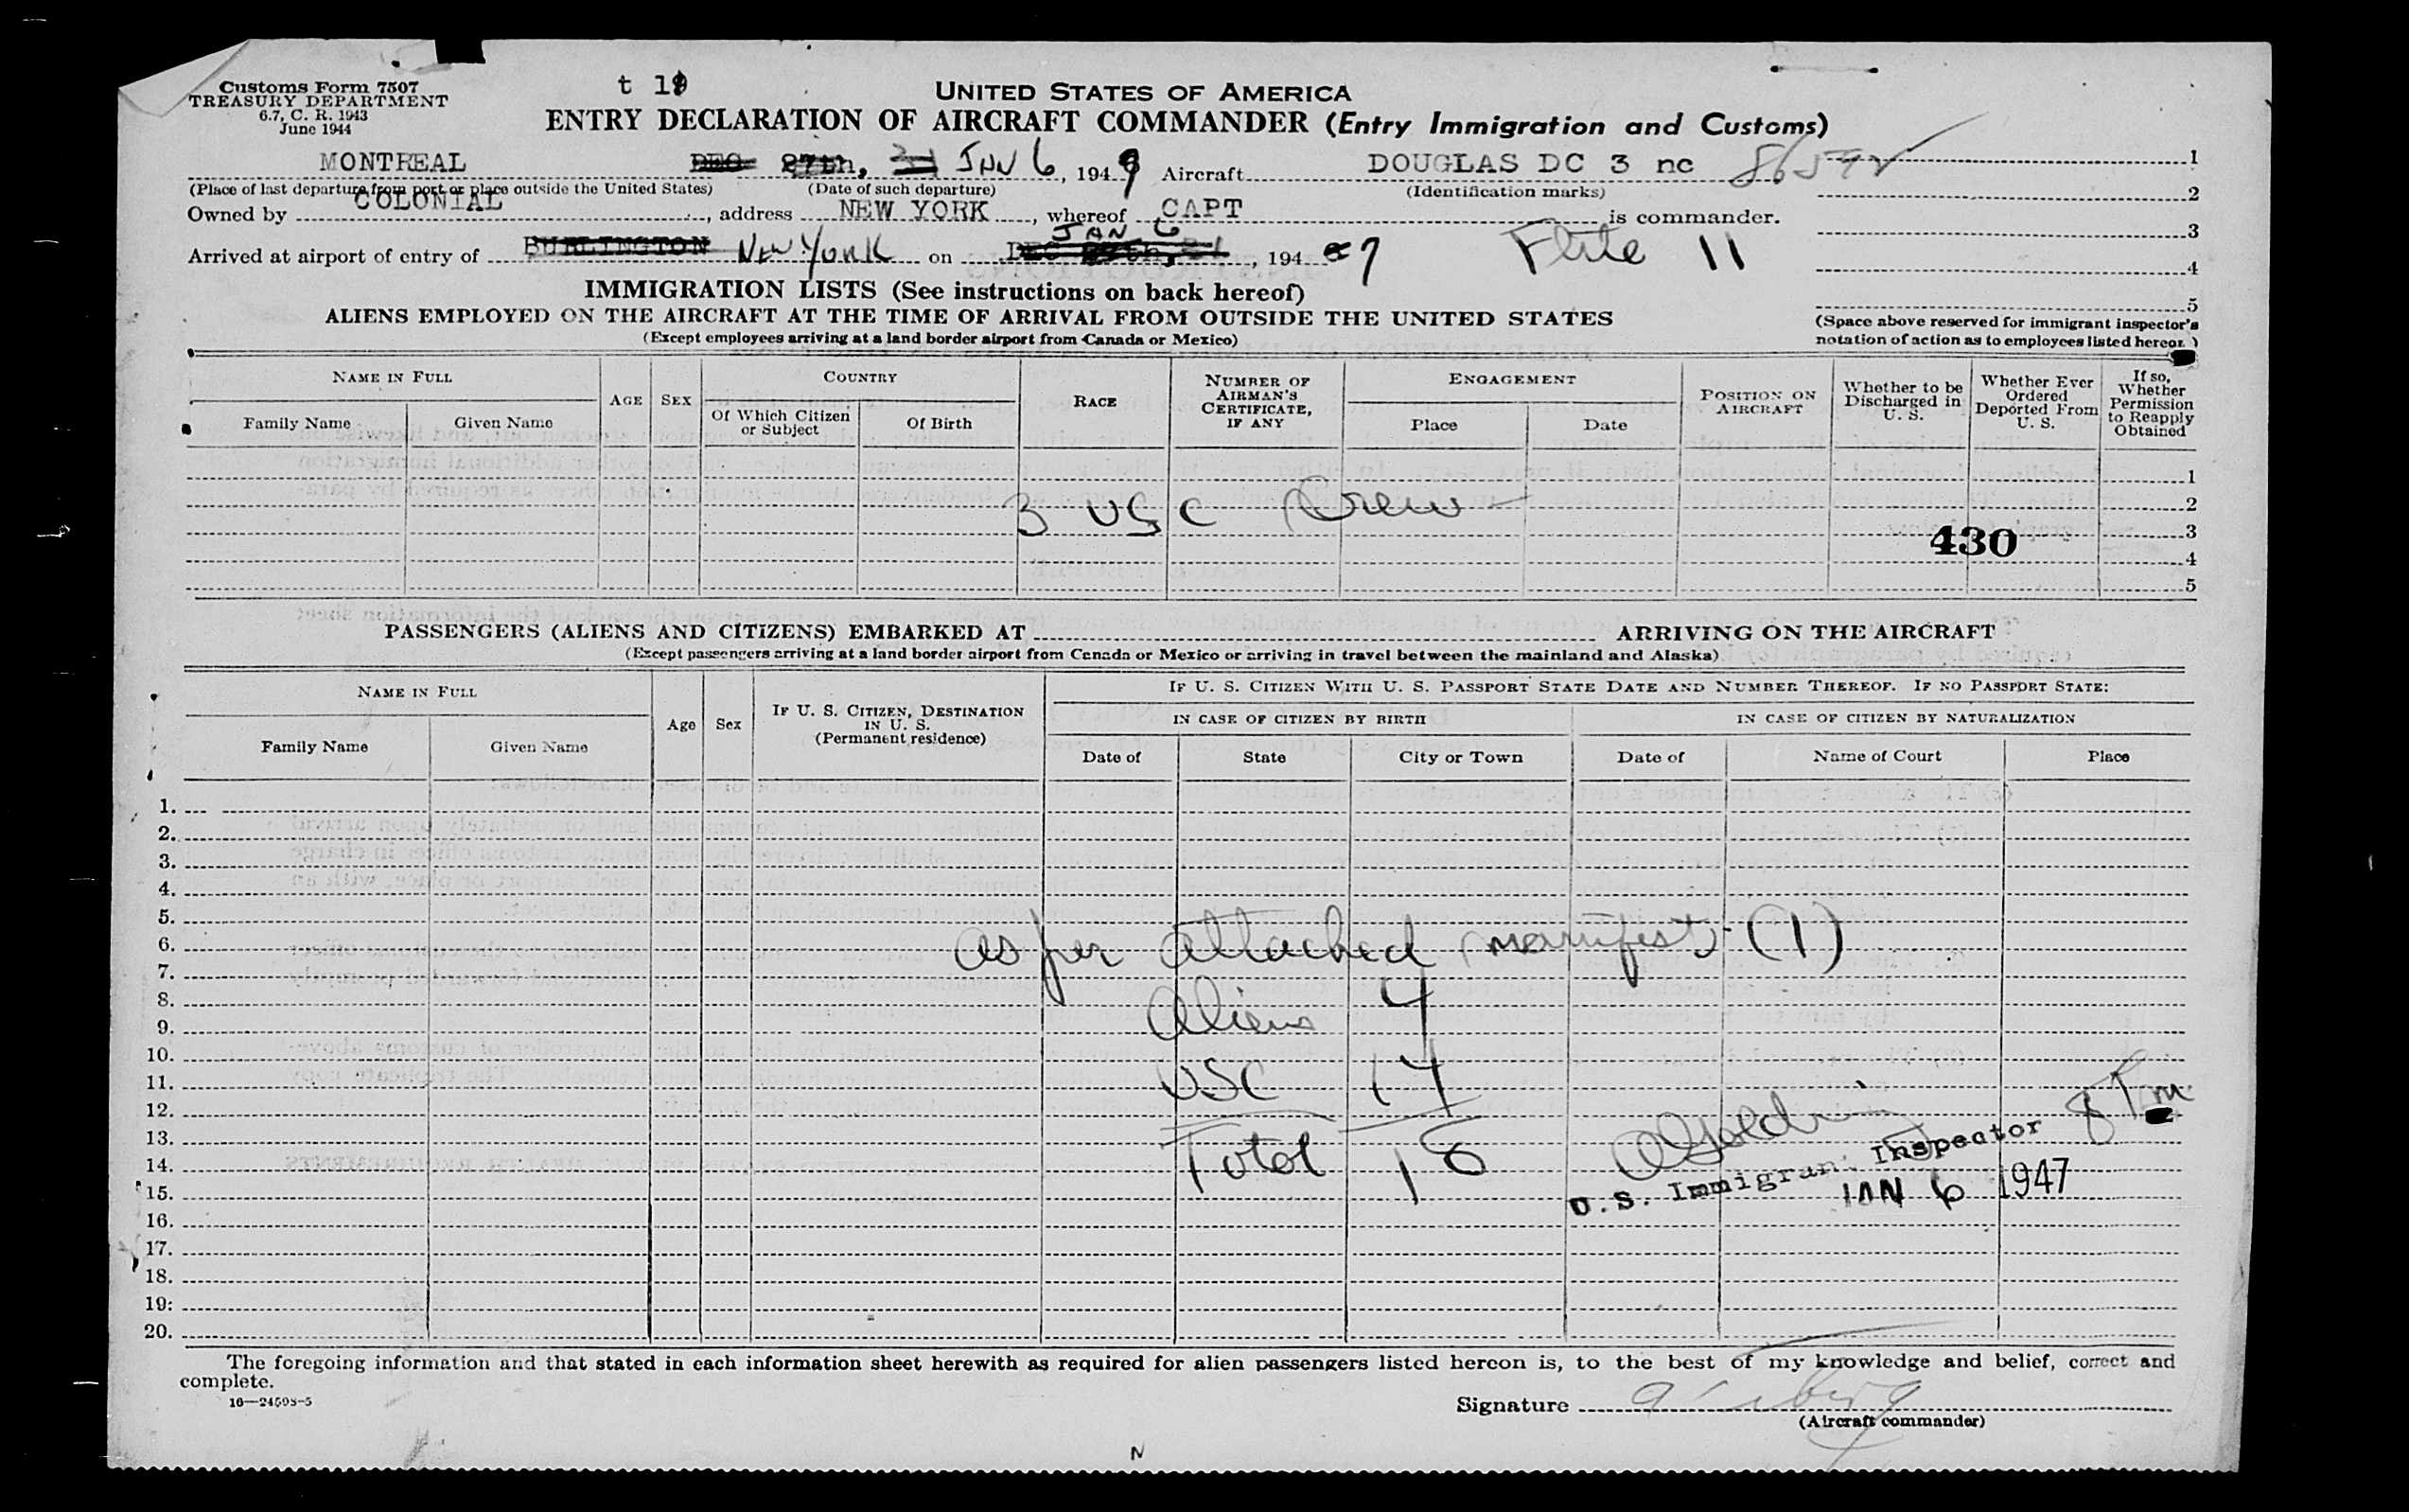 Customs Form 7507
TREASURY DEPARTMENT
6.7, C. R. 1943
June 1944
t 19
UNITED STATES OF AMERICA
ENTRY DECLARATION OF AIRCRAFT COMMANDER (Entry Immigration and Customs)
MONTREAL DEC 27th, JAN 6, 194 Aircraft DOUGLAS DC 3 nc 86592 1
(Place of last departure from port or place outside the United States) (Date of such departure) (Identification marks) 2
Owned by COLONIAL, address NEW YORK, whereof CAPT is commander.
3
JAN 6
Arrived at airport of entry of BURLINGTON NEW YORK on DEC, 194 7 Flite 11
4
IMMIGRATION LISTS (See instructions on back hereof)
5
ALIENS EMPLOYED ON THE AIRCRAFT AT THE TIME OF ARRIVAL FROM OUTSIDE THE UNITED STATES
(Except employees arriving at a land border airport from Canada or Mexico)
(Space above reserved for immigrant inspector's
notation of action as to employees listed hereon.)
NAME IN FULL
Family Name Given Name
AGE SEX
COUNTRY
Of Which Citizen or Subject
Of Birth
RACE
NUMBER OF AIRMAN'S CERTIFICATE, IF ANY
ENGAGEMENT
Place Date
POSITION ON AIRCRAFT
Whether to be Discharged in U. S.
Whether Ever Ordered Deported From U. S.
If so, Whether Permission to Reapply Obtained
1
2
3 USC Crew
3
430
4
5
PASSENGERS (ALIENS AND CITIZENS) EMBARKED AT ARRIVING ON THE AIRCRAFT
(Except passengers arriving at a land border airport from Canada or Mexico or arriving in travel between the mainland and Alaska)
NAME IN FULL
Family Name Given Name
Age Sex
IF U. S. CITIZEN, DESTINATION IN U. S.
(Permanent residence)
IF U. S. CITIZEN WITH U. S. PASSPORT STATE DATE AND NUMBER THEREOF. IF NO PASSPORT STATE:
IN CASE OF CITIZEN BY BIRTH IN CASE OF CITIZEN BY NATURALIZATION
Date of State City or Town Date of Name of Court Place
1.
2.
3.
4.
5.
6. as per attached manifest (1)
7.
8. Aliens 4
9.
10.
11. USC 14
12. 8 Pm
13.
14. Total 18
U.S. Immigrant Inspector
15. JAN 6 1947
16.
17.
18.
19.
20.
The foregoing information and that stated in each information sheet herewith as required for alien passengers listed hereon is, to the best of my knowledge and belief, correct and
complete.
16—24598-5
Signature
(Aircraft commander)
N